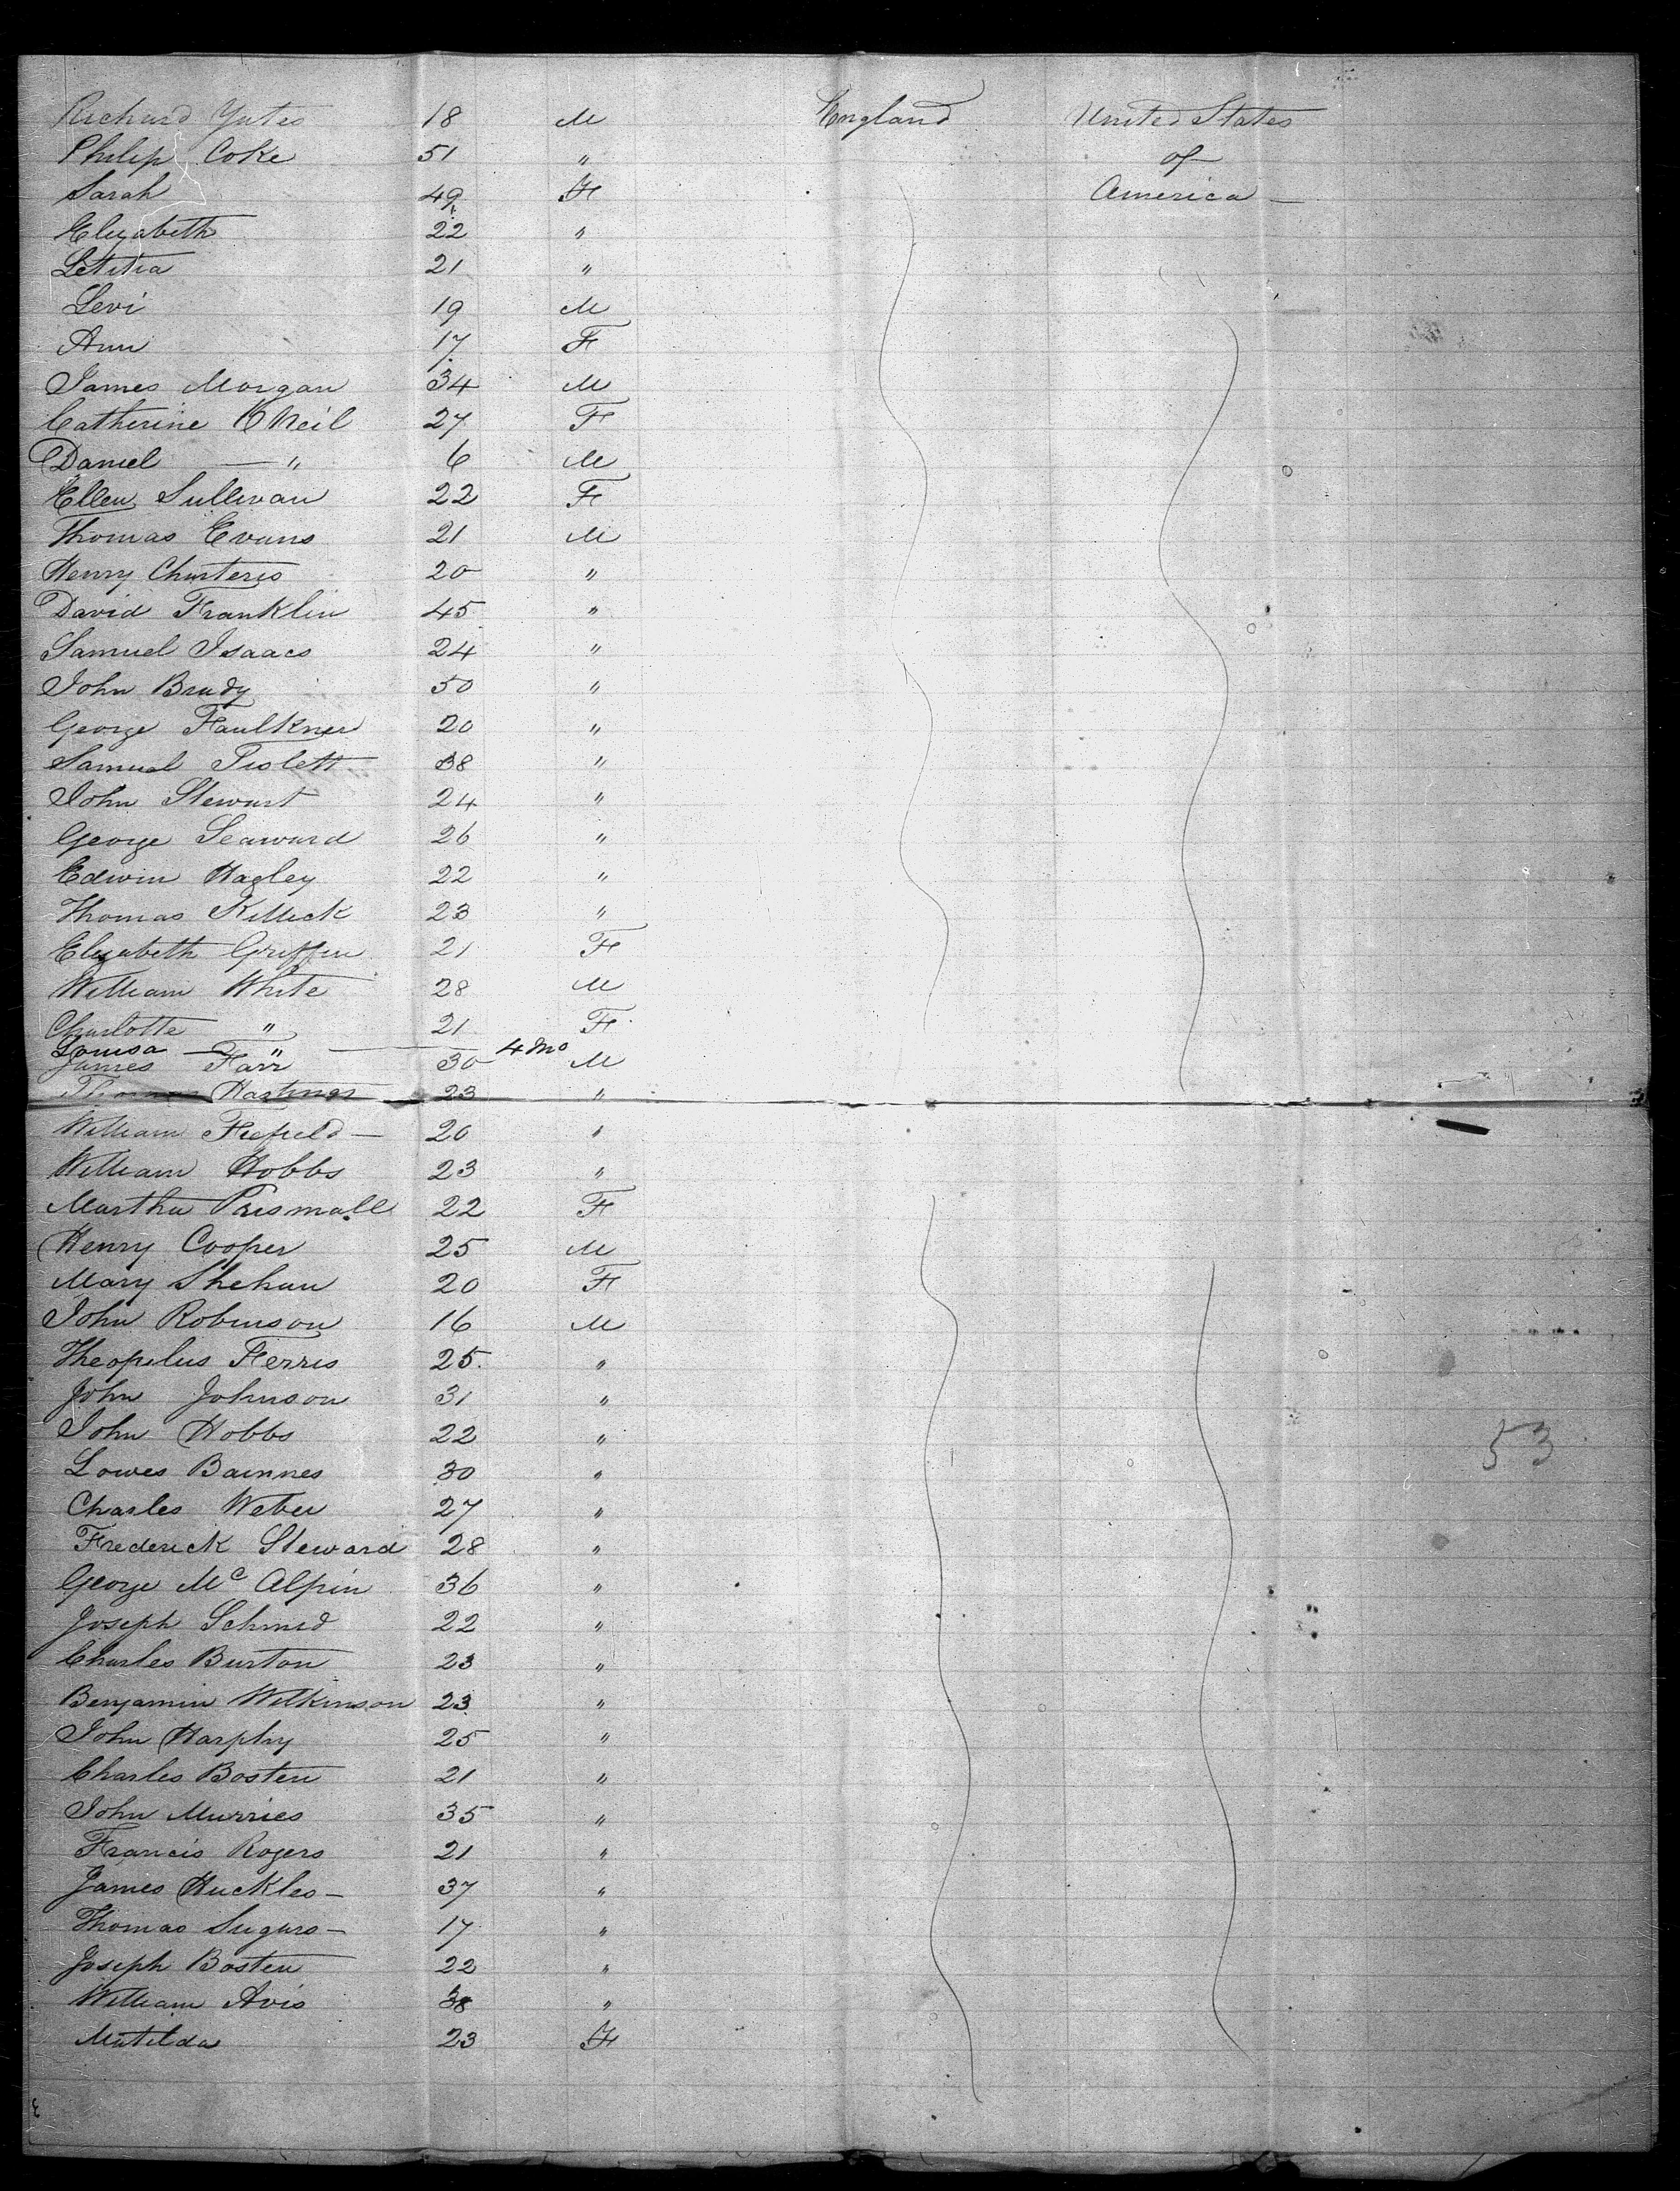 Richard Yates 18 M England United States
Philip Coke 51 " of
Sarah 49 F America —
Elizabeth 22 "
Letitia 21 "
Levi 19 M
Ann 17 F
James Morgan 34 M
Catherine O'Neil 27 F
Daniel — " 6 M
Ellen Sullivan 22 F
Thomas Evans 21 M
Henry Charteris 20 "
David Franklin 45 "
Samuel Isaacs 24 "
John Brady 50 "
George Faulkner 20 "
Samuel Tislett 38 "
John Stewart 24 "
George Seaward 26 "
Edwin Hagley 22 "
Thomas Killick 23 "
Elizabeth Griffin 21 F
William White 28 M
Charlotte " 21 F
Louisa — " — 4 Mo
James Farr 30 M
Thomas Hastings 23 "
William Fiefield — 20 "
William Hobbs 23 "
Martha Prismall 22 F
Henry Cooper 25 M
Mary Shehan 20 F
John Robinson 16 M
Theopilus Ferris 25 "
John Johnson 31 "
John Hobbs 22 " 53
Lowes Bainnes 30 "
Charles Weber 27 "
Frederick Steward 28 "
George Mc Alpin 36 "
Joseph Schmid 22 "
Charles Burton 23 "
Benjamin Wilkinson 23 "
John Harphy 25 "
Charles Bosten 21 "
John Murries 35 "
Francis Rogers 21 "
James Huckles — 37 "
Thomas Sugurs — 17 "
Joseph Bosten 22 "
William Avis 38 "
Matilda 23 F